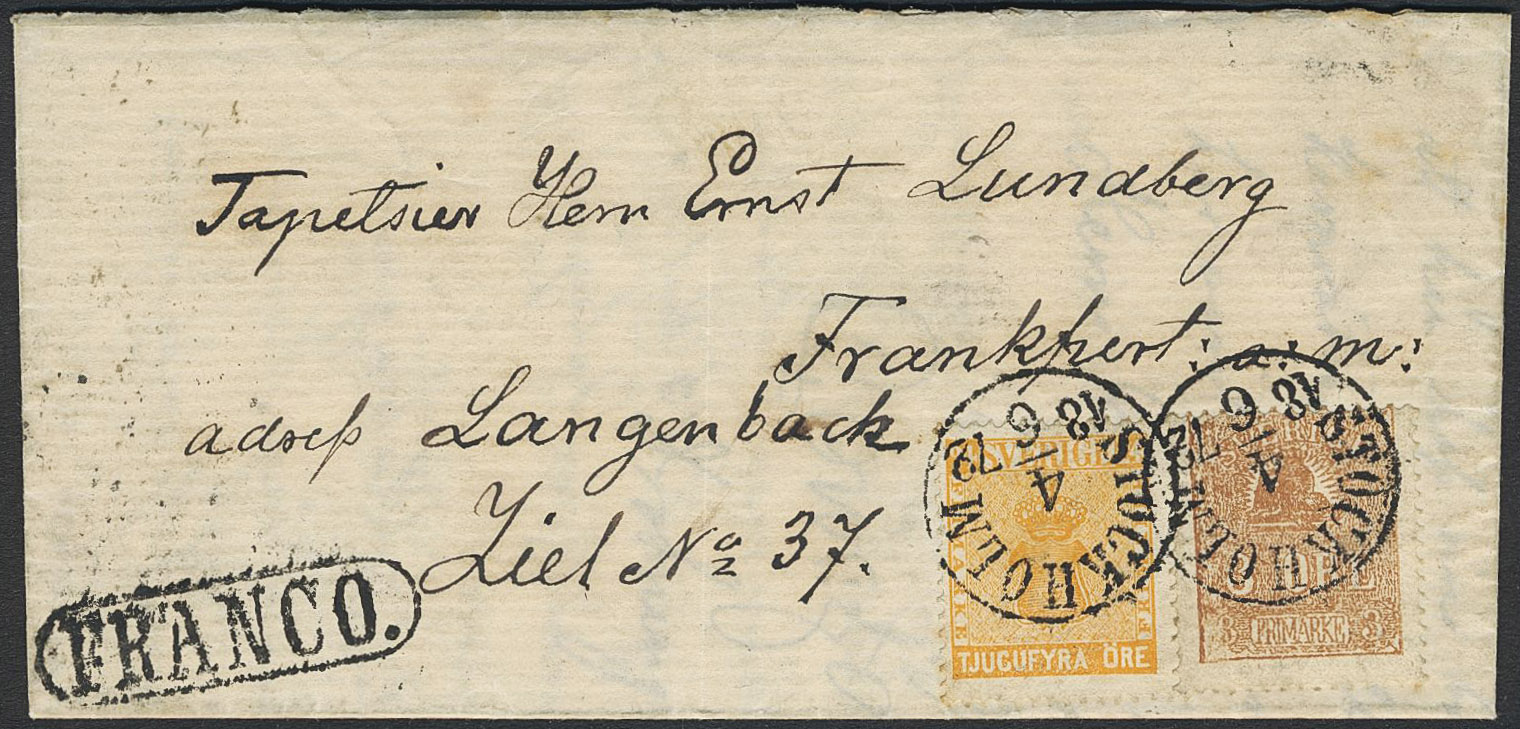 Tapetsier Herr Ernst Lundberg
Frankfert: a: m:
adress Langenback
Ziel No 37.
FRANCO.
STOCKHOLM
4
6
72
STOCKHOLM
4
6
72
SVERIGE
TJUGUFYRA ÖRE
ÖRE
3 FRIMÄRKE 3